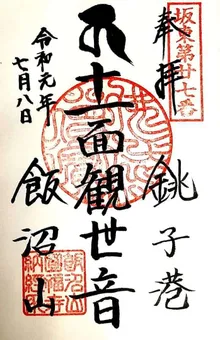 坂東第廿七番
奉拝
銚子巷
十一面観世音
飯沼山
令和元年
七月八日